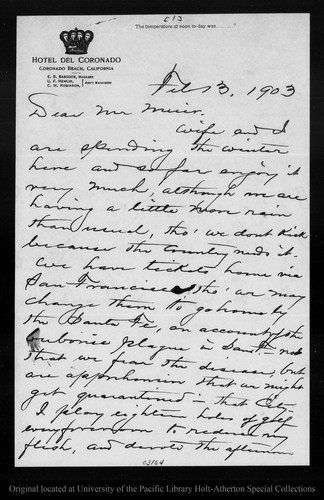 c13
The temperature at noon to-day was
HOTEL DEL CORONADO
CORONADO BEACH, CALIFORNIA
E. S. BABCOCK, MANAGER
U. F. NEWLIN,
G. W. ROBINSON, ASS'T MANAGERS
Feb 3, 1903
Dear Mr Muir.
Wife and I
are spending the winter
here and so far enjoy it
very much, although we are
having a little more rain
than usual, tho' we dont kick
because the country needs it.
We have tickets home via
San Francisco tho' we may
change them to go home by
the Santa Fe, on account of the
Bubonic plague in San F. not
that we fear the disease, but
are apprehensive that we might
get quarantined in that City.
I play eighteen holes of golf
every forenoon to reduce my
flesh, and devote the afternoon
03164
Original located at University of the Pacific Library Holt-Atherton Special Collections